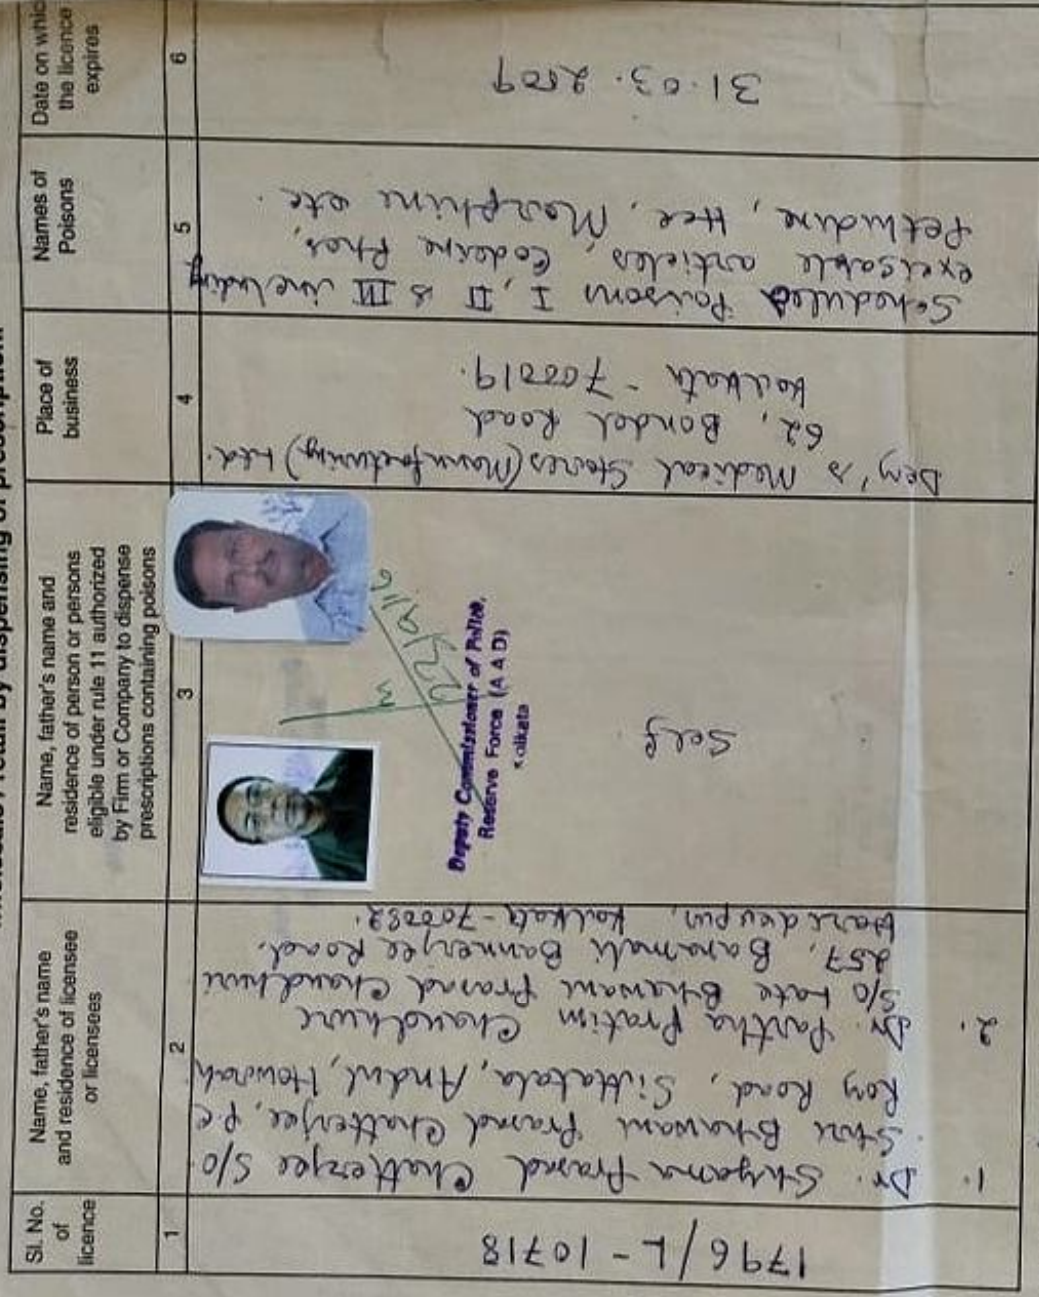 Sl. No.
of
licence
Name, father's name
and residence of licensee
or licensees
Name, father's name and
residence of person or persons
eligible under rule 11 authorized
by Firm or Company to dispense
prescriptions containing poisons
Place of
business
Names of
Poisons
Date on whic
the licence
expires
1
2
3
4
5
6
1796/L-10718
1. Dr. Shyama Prasad Chatterjee S/O
Shri Bhawani Prasad Chatterjee, P.C
Roy Road, Sittatala, Andul, Howrah
2. Dr. Partha Pratim Chaudhuri
S/O Late Bhawani Prasad Chaudhuri
257, Banamali Bannerjee Road.
Haridevpur, Kolkata-700082.
Deputy Commissioner of Police,
Reserve Force (A A D)
Kolkata
Self
Dey's Medical Stores (Manufacturing) Ltd.
62, Bondel Road
Kolkata - 700019.
Schedule Poisons I, II & III including
excisable articles, Codeine Phos,
Pethidine, Her, Morphine etc.
31.03.2009